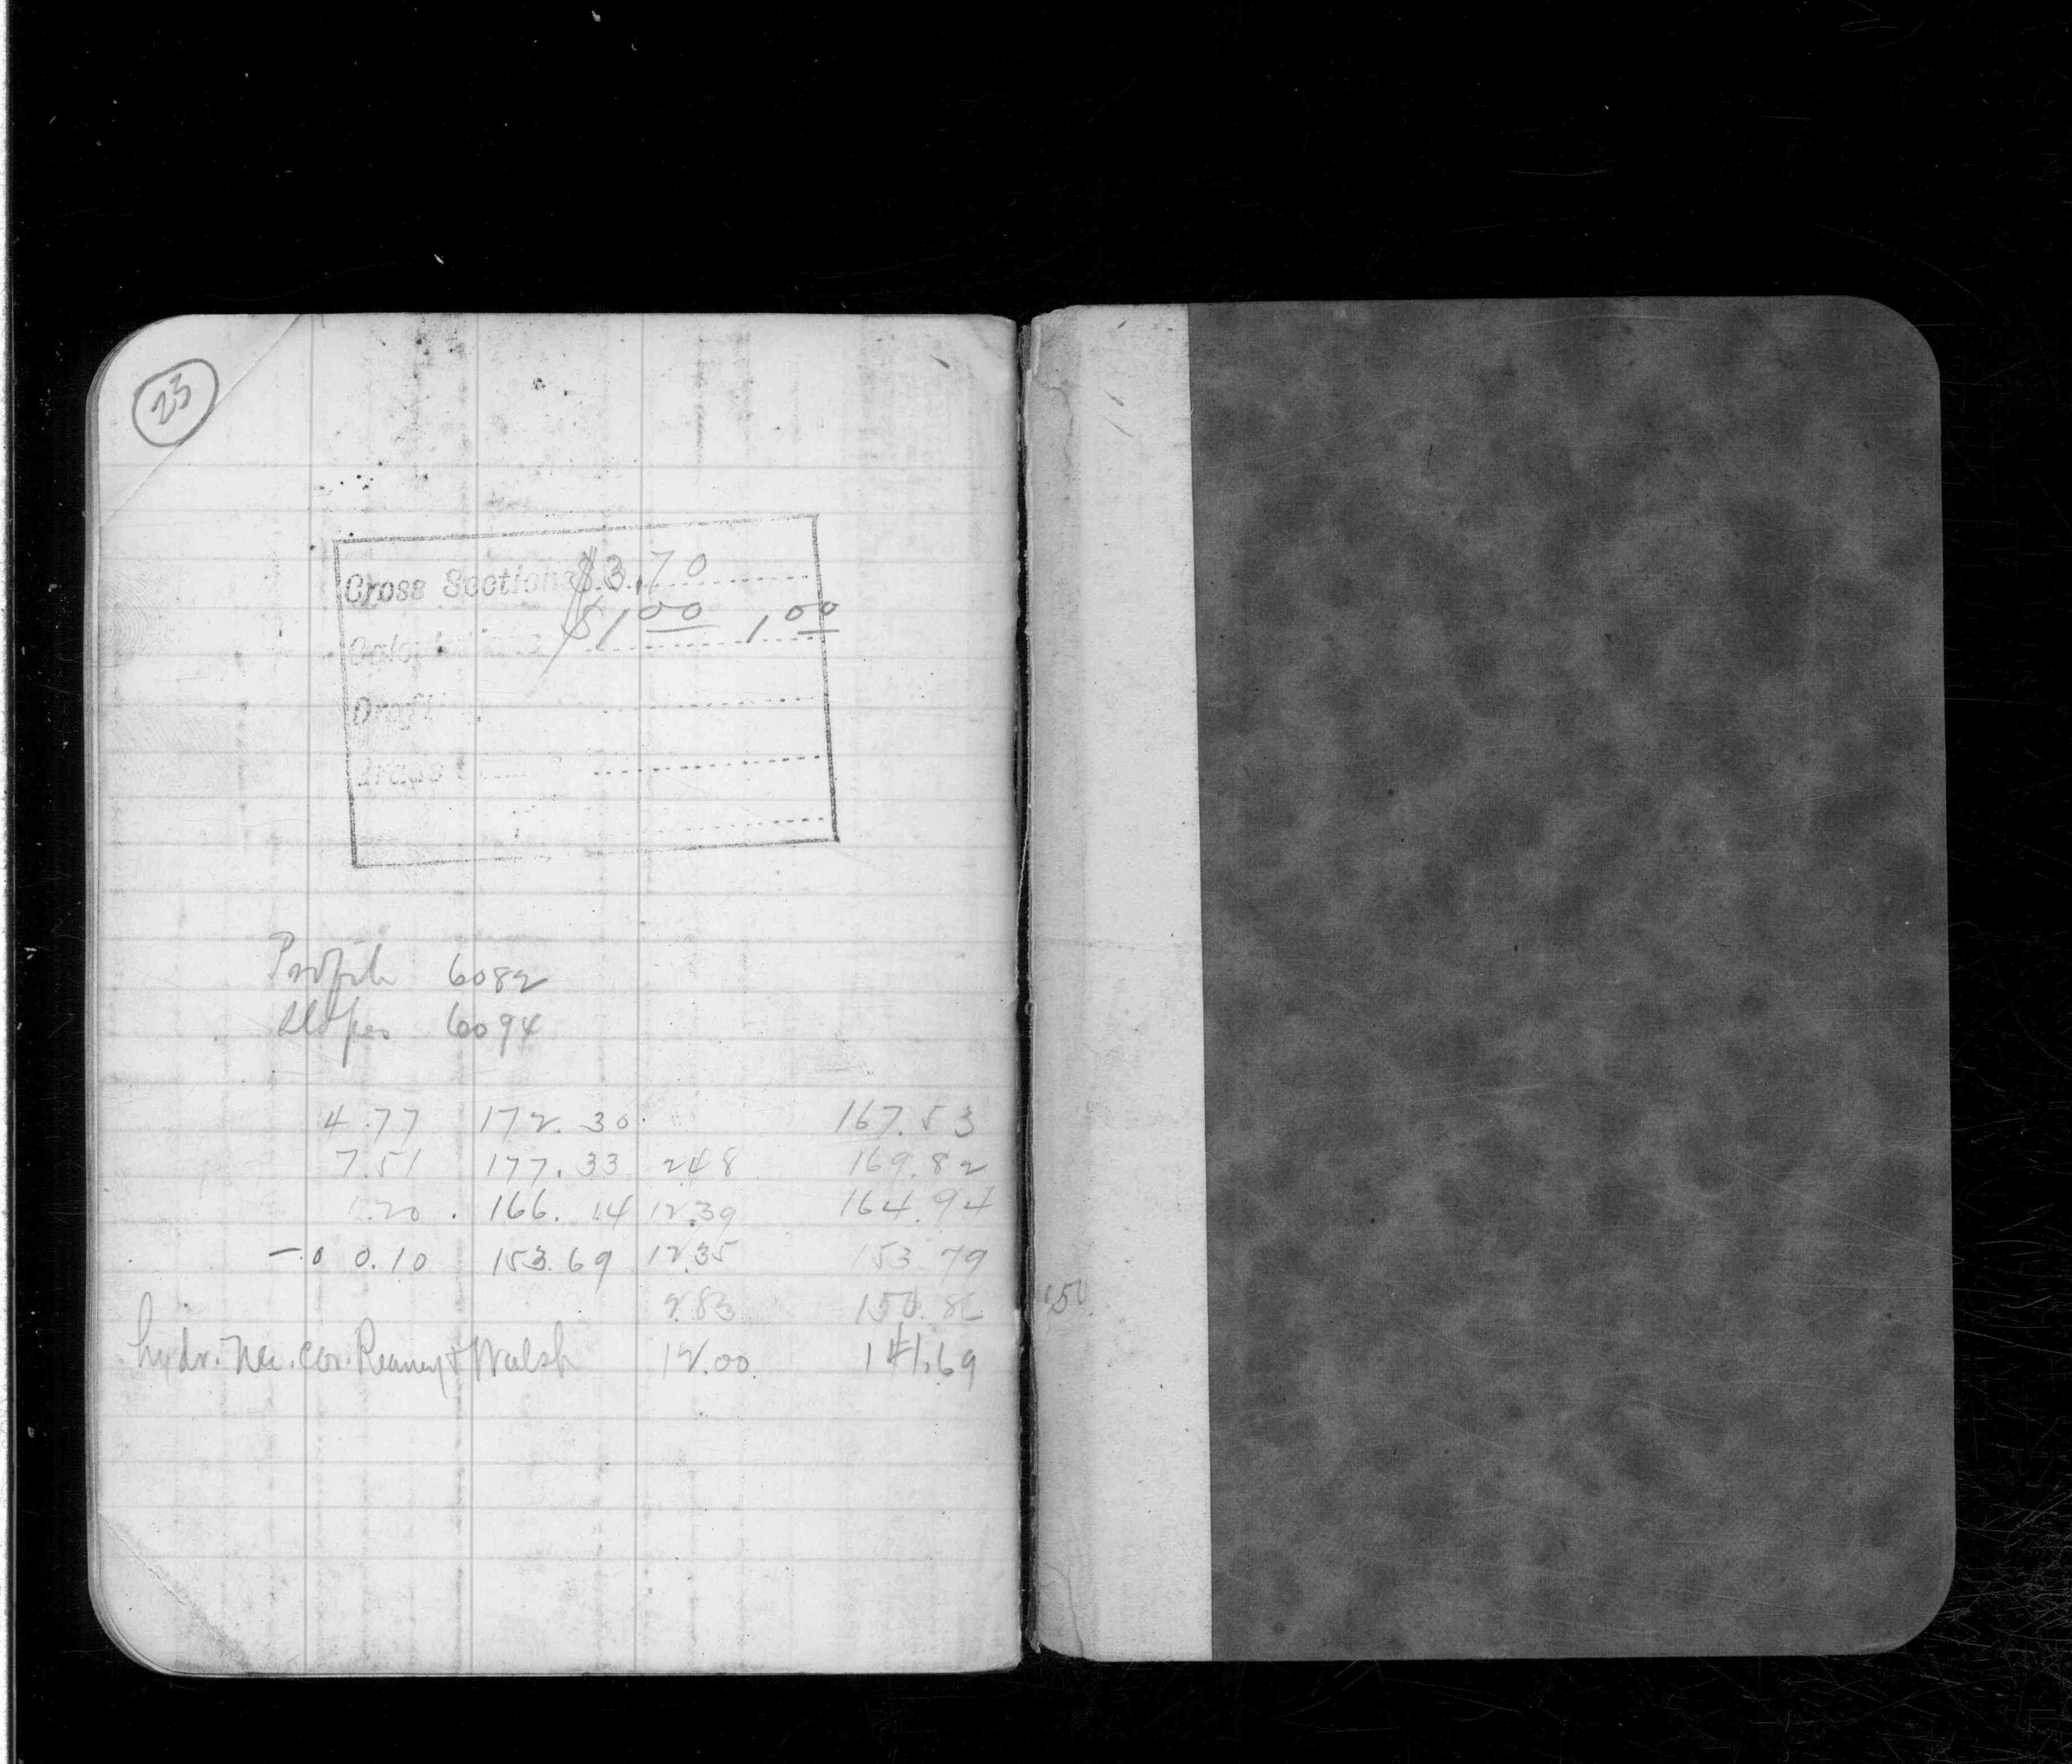 23
Cross Sections $3.70
Calculations $1.00 1.00
Draft
Grade
Profile 6082
Slopes 6094
4.77 172.30 167.53
7.51 177.33 2.48 169.82
1.20 166.14 12.39 164.94
-.0 0.10 153.69 12.35 153.79
2.83 150.86 150.
hydr. N.E. cor. Reaney & Walsh 12.00 141.69